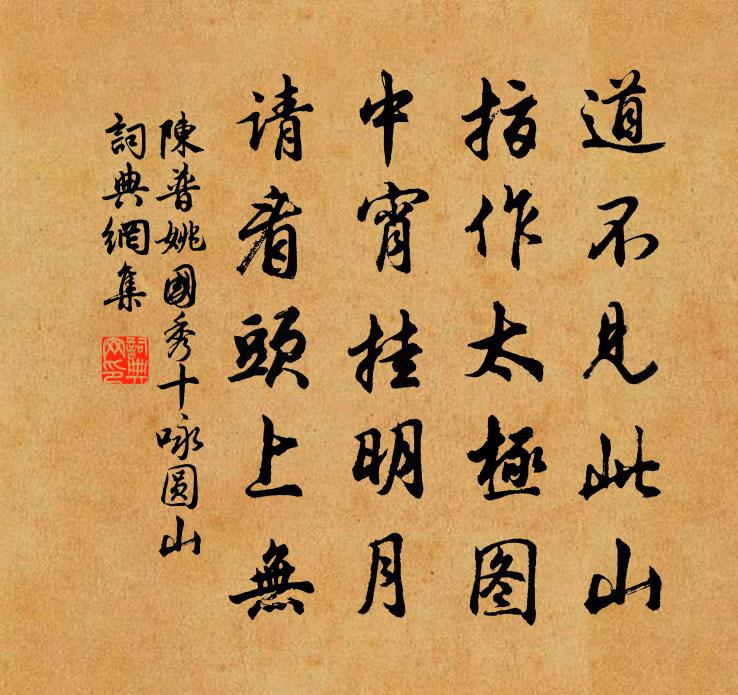 道不见此山
指作太極图
中宵挂明月
请看頭上無
陳普姚國秀十咏圓山
詞典網集
詞典网印